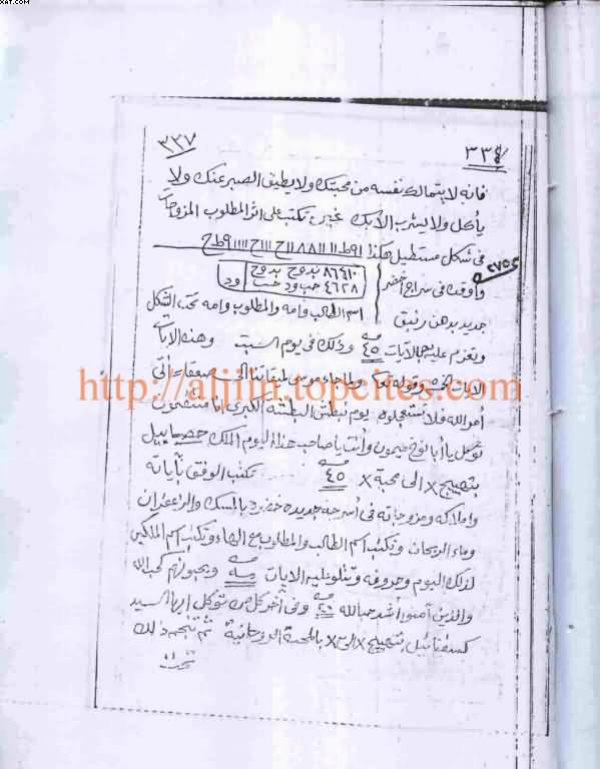 XAT.COM
٣٣٧ ٣٣٤
فانه لا يتمالك نفسه من محبتك ولا يطيق الصبر عنك ولا
يأكل ولا يشرب الا بك غيره تكتب على اثر المطلوب المزوجات
فى شكل مستطيل هكذا
٨٦٤١٠ بدوح بدوح
٤٦٢٨ حب ود حب ود
وأوقده فى سراج أخضر
جديد بدهن زنبق اسم الطالب وامه والمطلوب وامه تحت الشكل
وتعزم عليه بالآيات ٤٥ مرة وذلك فى يوم السبت وهذه الآيات
http://aljinn.topcites.com
وقوله تعالى ولما جاء موسى لميقاتنا الى صعقا أتى
أمر الله فلا تستعجلوه يوم نبطش البطشة الكبرى انا منتقمون
توكل يا أبا نوخ ميمون وأنت يا صاحب هذا اليوم الملك
بتهييج x الى محبة x ٤٥ مرة تكتب الوفق بآياته
واملاكه ومزوجاته فى أسرجه جديده خضر بالمسك والزعفران
وماء الريحان وتكتب اسم الطالب والمطلوب مع الهاء وتكتب اسم الملكين
لذلك اليوم وحروفه وتتلو عليه الآيات مرة ويحبونهم كحب الله
والذين آمنوا أشد حبا لله مرة وفى آخر كل مرة توكل ايها السيد
كسفيائيل بتهييج x الى x بالمحبة الروحانية ثم
تحت